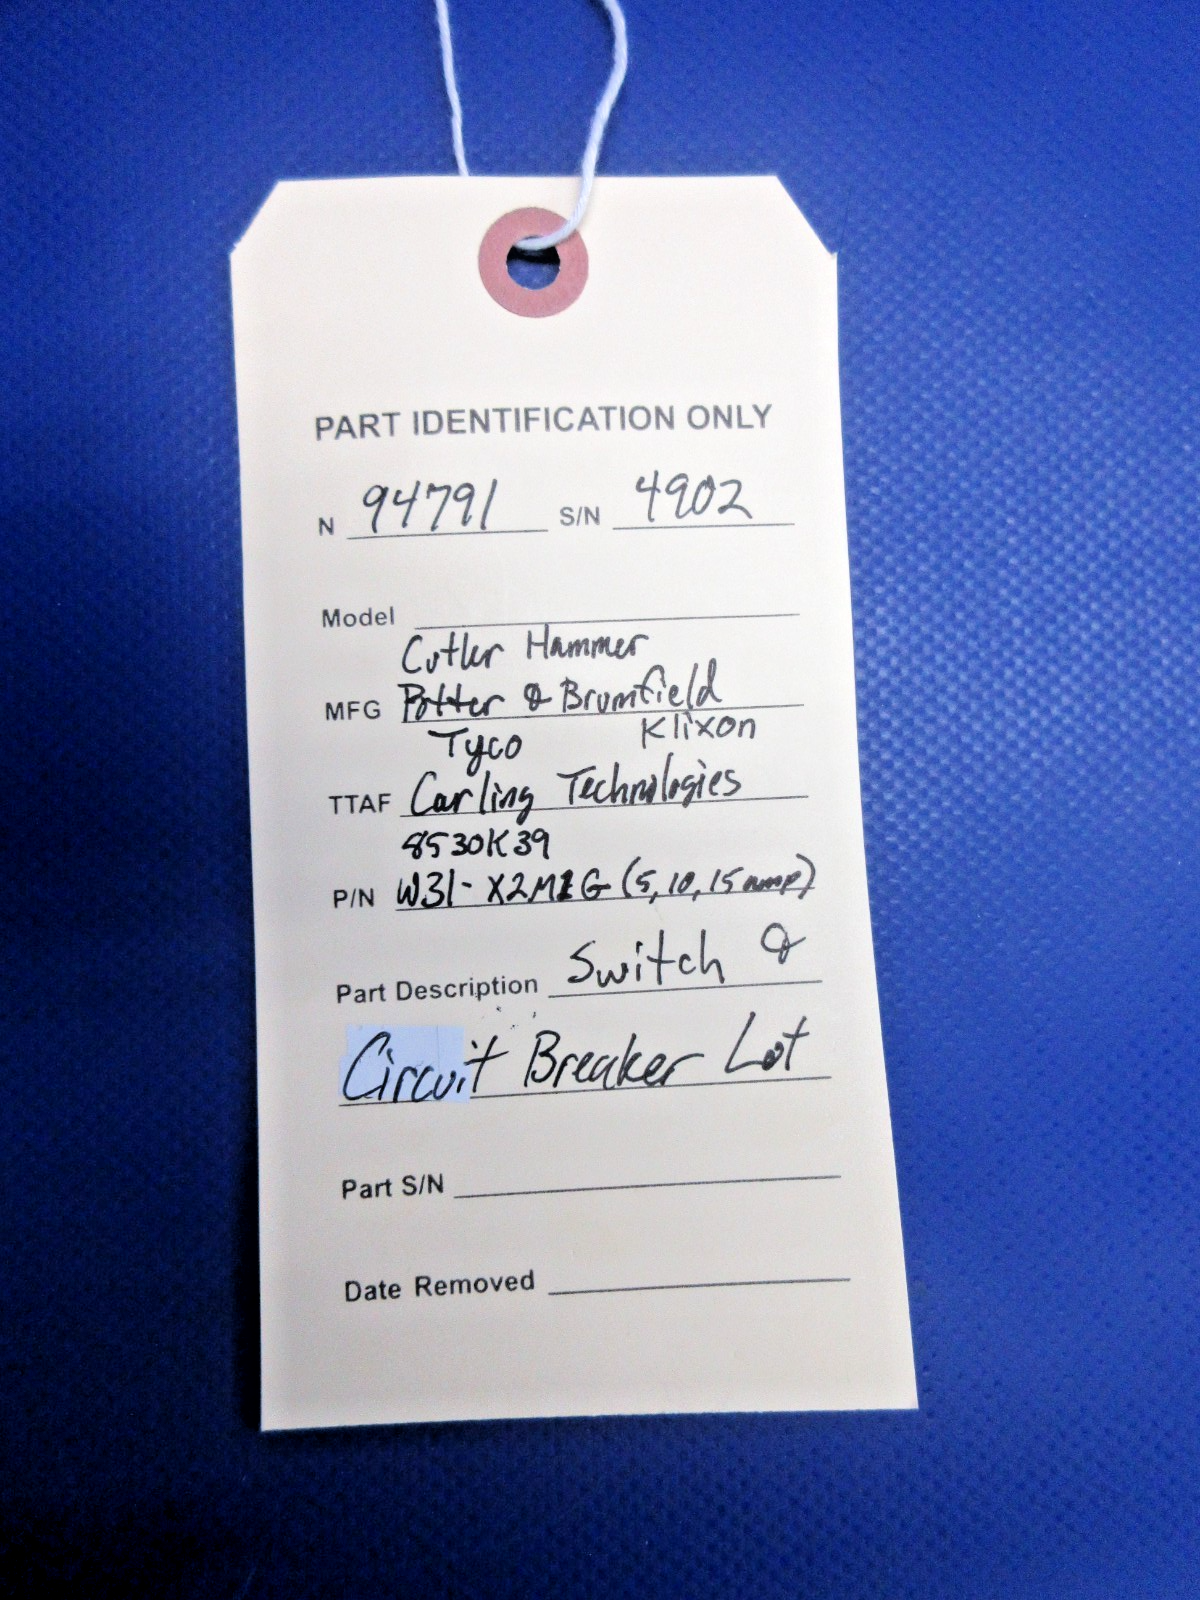 PART IDENTIFICATION ONLY
N 94791 S/N 4902
Model
Cutler Hammer
MFG Potter & Brumfield
Tyco Klixon
TTAF Carling Technologies
8530K39
P/N W31-X2M1G (5, 10, 15 amp)
Part Description Switch &
Circuit Breaker Lot
Part S/N
Date Removed